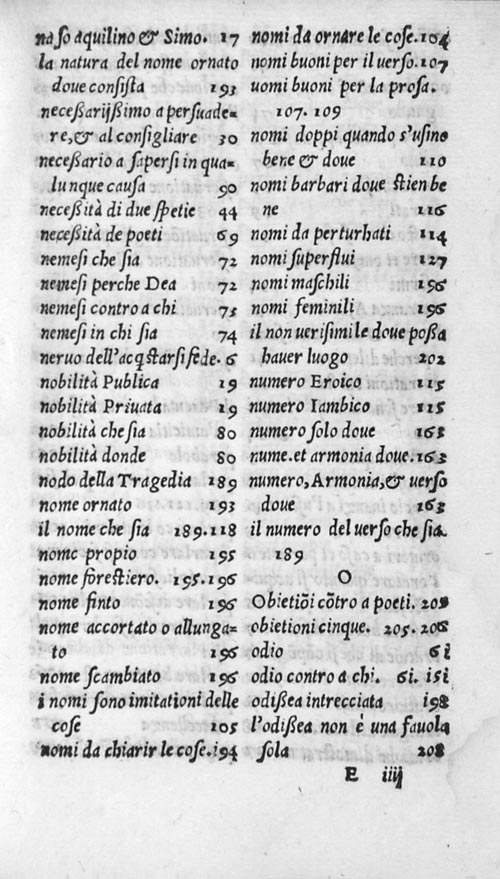 naſo aquilino & Simo. 17
la natura del nome ornato
doue conſiſta 193
neceßarijßimo a perſuade=
re, & al conſigliare 30
neceßario a ſaperſi in qua=
lunque cauſa 90
neceßità di due ſpetie 44
neceßità de poeti 69
nemeſi che ſia 72
nemeſi perche Dea 72
nemeſi contro a chi 73
nemeſi in chi ſia 74
neruo dell'acq̃ſtarſi fede. 6
nobilità Publica 19
nobilità Priuata 19
nobilità che ſia 80
nobilità donde 80
nodo della Tragedia 189
nome ornato 193
il nome che ſia 189.118
nome propio 195
nome foreſtiero. 195.196
nome finto 196
nome accortato o allunga=
to 196
nome ſcambiato 196
i nomi ſono imitationi delle
coſe 105
nomi da chiarir le coſe. 194
nomi da ornare le coſe. 104
nomi buoni per il uerſo. 107
uomi buoni per la proſa.
107. 109
nomi doppi quando s'uſino
bene & doue 110
nomi barbari doue ſtien be
ne 116
nomi da perturhati 114
nomi ſuperflui 127
nomi maſchili 196
nomi feminili 196
il non ueriſimile doue poßa
hauer luogo 202
numero Eroico 115
numero Iambico 115
numero ſolo doue 163
nume. et armonia doue. 163
numero, Armonia, & uerſo
doue 163
il numero del uerſo che ſia
189
O
Obietiõi cõtro a poeti. 205
obietioni cinque. 205. 206
odio 61
odio contro a chi. 61. 151
odißea intrecciata 198
l'odißea non è una fauola
ſola 208
E iiij